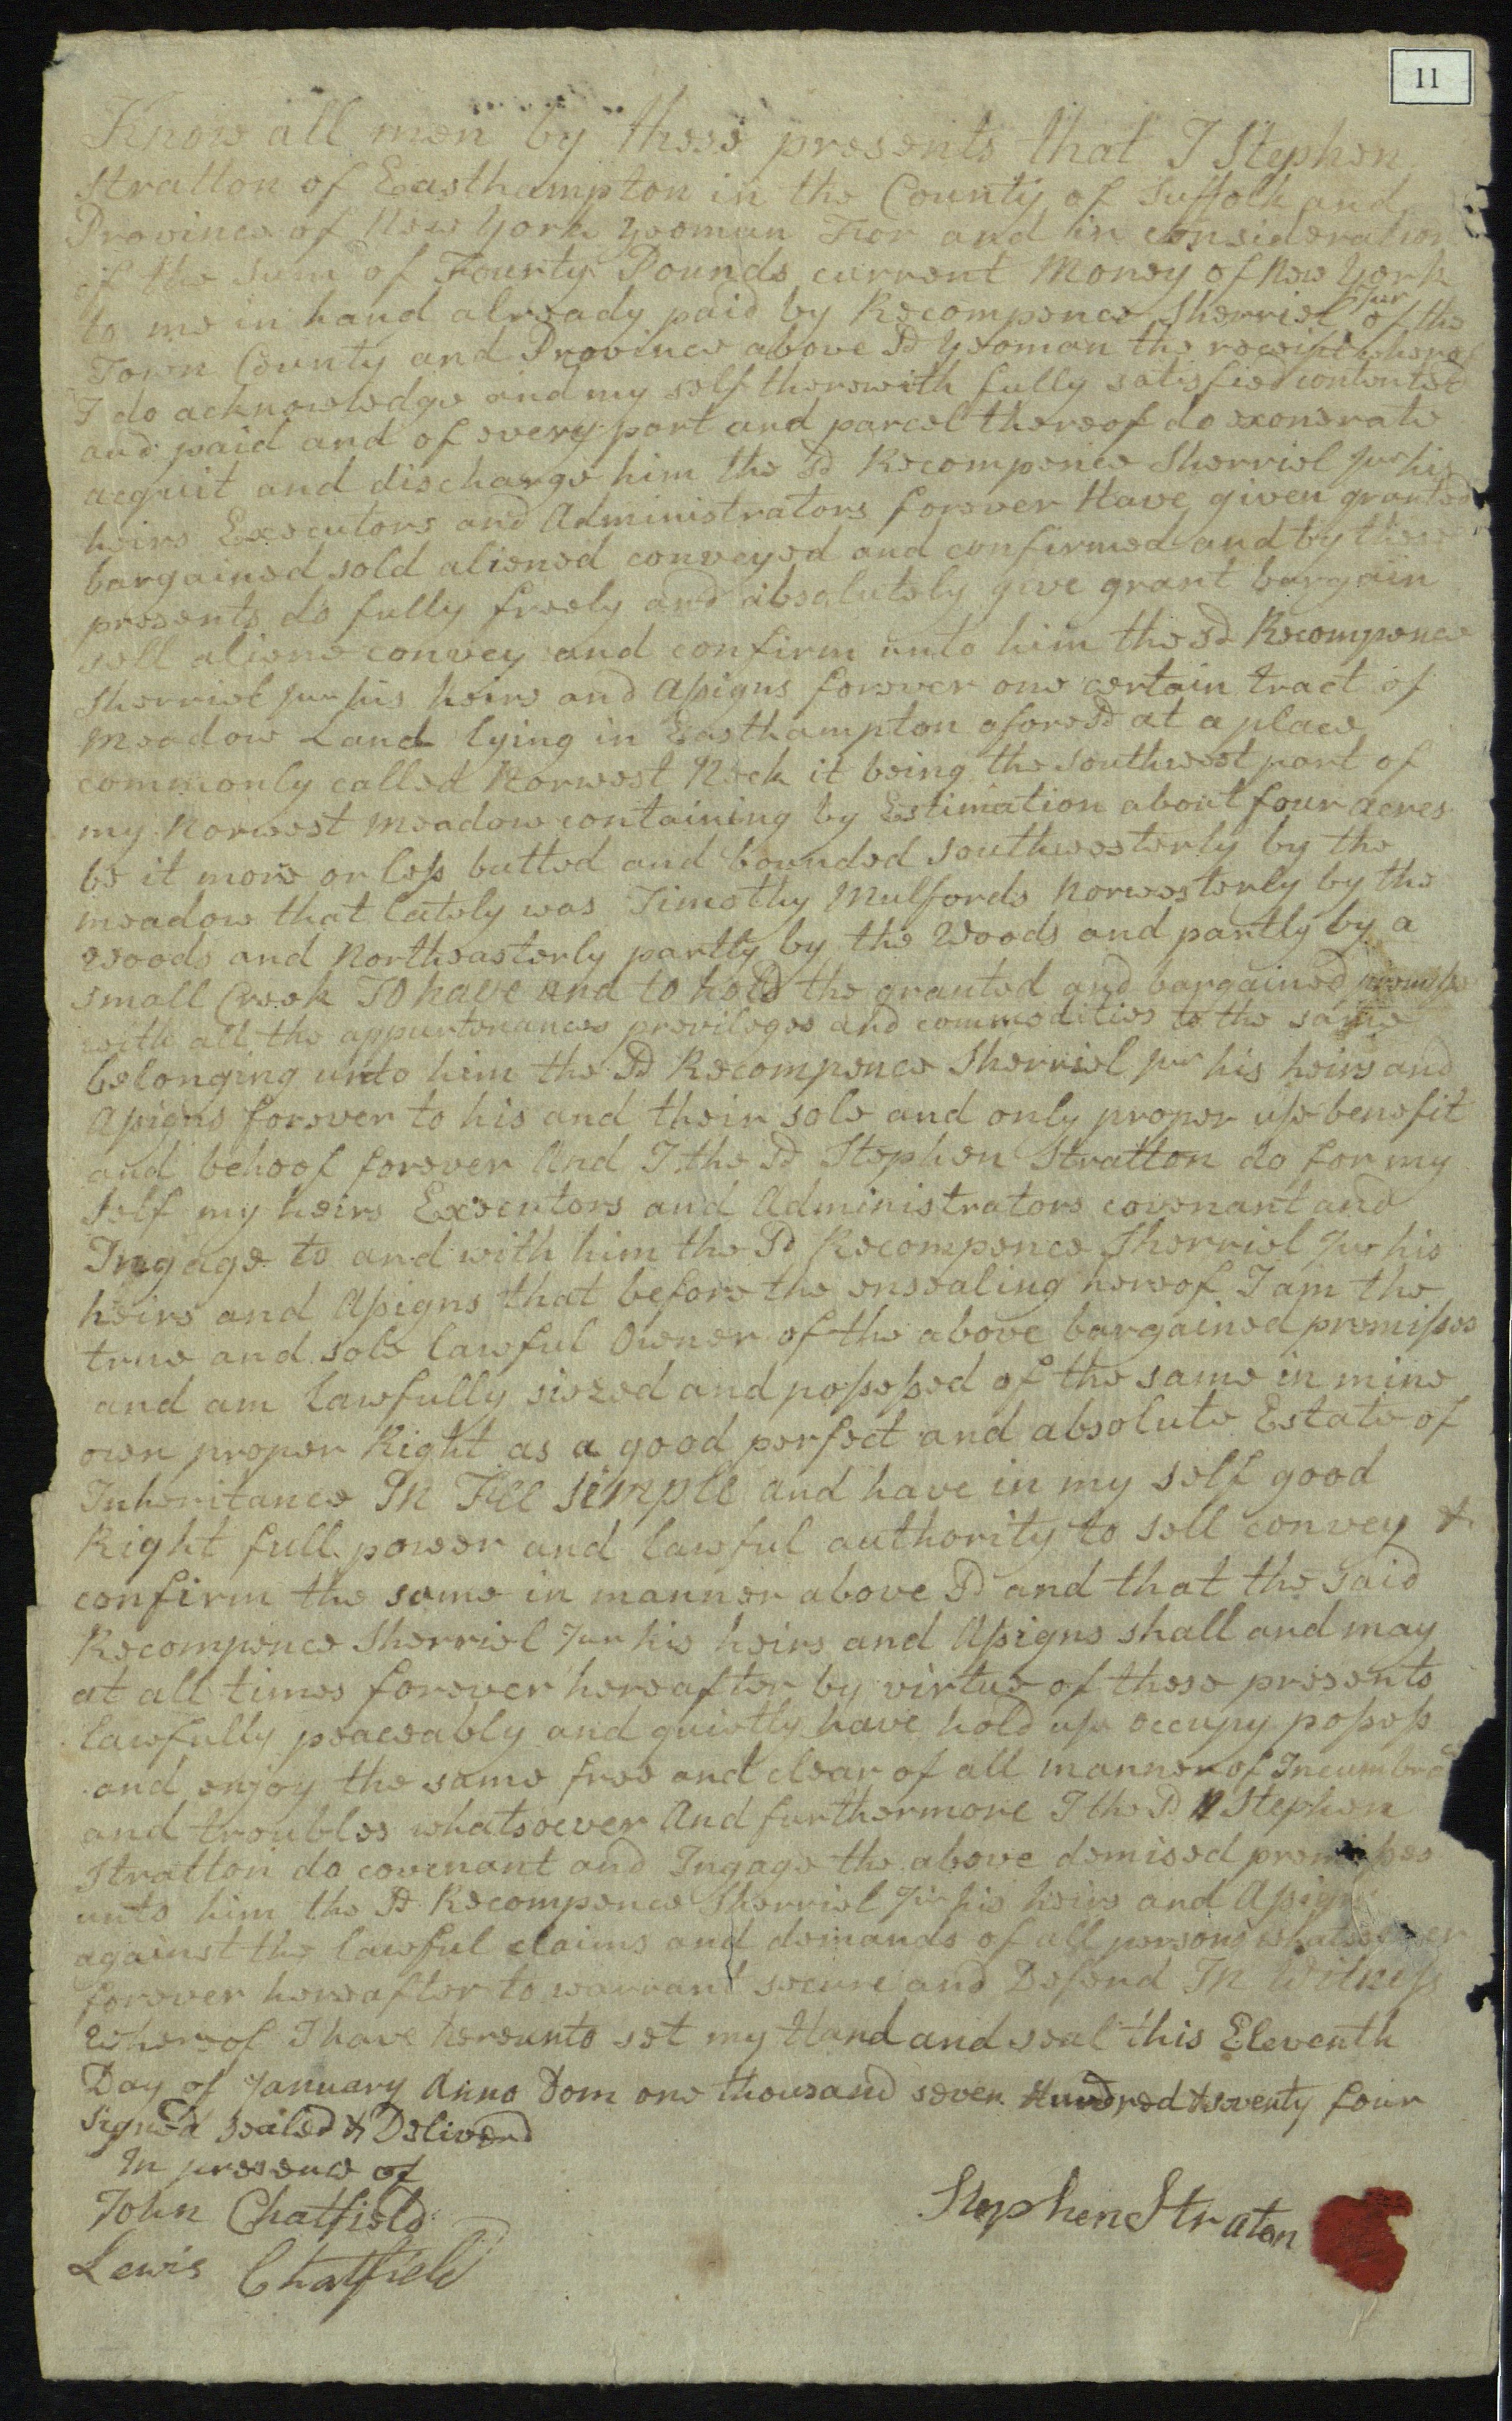 11
Know all men by these presents that I Stephen
Stratton of Easthampton in the County of Suffolk and
Province of New York Yeoman For and in consideration
of the sum of Fourty Pounds current Money of New York
to me in hand already paid by Recompence Sherriel Jur of the
Town County and Province above Sd Yeoman the receipt whereof
I do acknowledge and my self therewith fully satisfied contented
and paid and of every part and parcel thereof do exonerate
acquit and discharge him the Sd Recompence Sherriel Jur his
heirs Executors and Administrators forever Have given granted
bargained sold aliened conveyed and confirmed and by these
presents do fully freely and absolutely give grant bargain
sell aliene convey and confirm unto him the Sd Recompence
Sherriel Jur his heirs and Assigns forever one certain tract of
Meadow Land lying in Easthampton afore Sd at a place
commonly called Norwest Neck it being the southwest part of
my Norwest meadow containing by Estimation about four acres
be it more or less butted and bounded southwesterly by the
meadow that lately was Timothy Mulfords Norwesterly by the
woods and Northeasterly partly by the Woods and partly by a
small Creek To have and to hold the granted and bargained
with all the appurtenances previleges and commodities to the same
belonging unto him the Sd Recompence Sherriel Jur his heirs and
Assigns forever to his and their sole and only proper use benefit
and behoof forever And I the Sd Stephen Stratton do for my
self my heirs Executors and Administrators covenant and
Ingage to and with him the Sd Recompence Sherriel Jur his
heirs and Assigns that before the ensealing hereof I am the
true and sole lawful Owner of the above bargained premisses
and am lawfully siezed and possessed of the same in mine
own proper Right as a good perfect and absolute Estate of
Inheritance In Fee Simple and have in my self good
Right full power and lawful authority to sell convey &
confirm the same in manner above Sd and that the said
Recompence Sherriel Jur his heirs and Assigns shall and may
at all times forever hereafter by virtue of these presents
lawfully peaceably and quietly have hold use occupy possess
and enjoy the same free and clear of all manner of
and troubles whatsoever And furthermore I the Sd Stephen
Stratton do covenant and Ingage the above demised premisses
unto him the Sd Recompence Sherriel Jur his heirs and Assigns
against the lawful claims and demands of all persons whatsoever
forever hereafter to warrant secure and Defend In Witness
whereof I have hereunto set my Hand and seal this Eleventh
Day of January Anno Dom one thousand seven Hundred & seventy four
Signed sealed & Deliverd
In presence of
John Chatfield
Stephen Straton
Lewis Chatfield